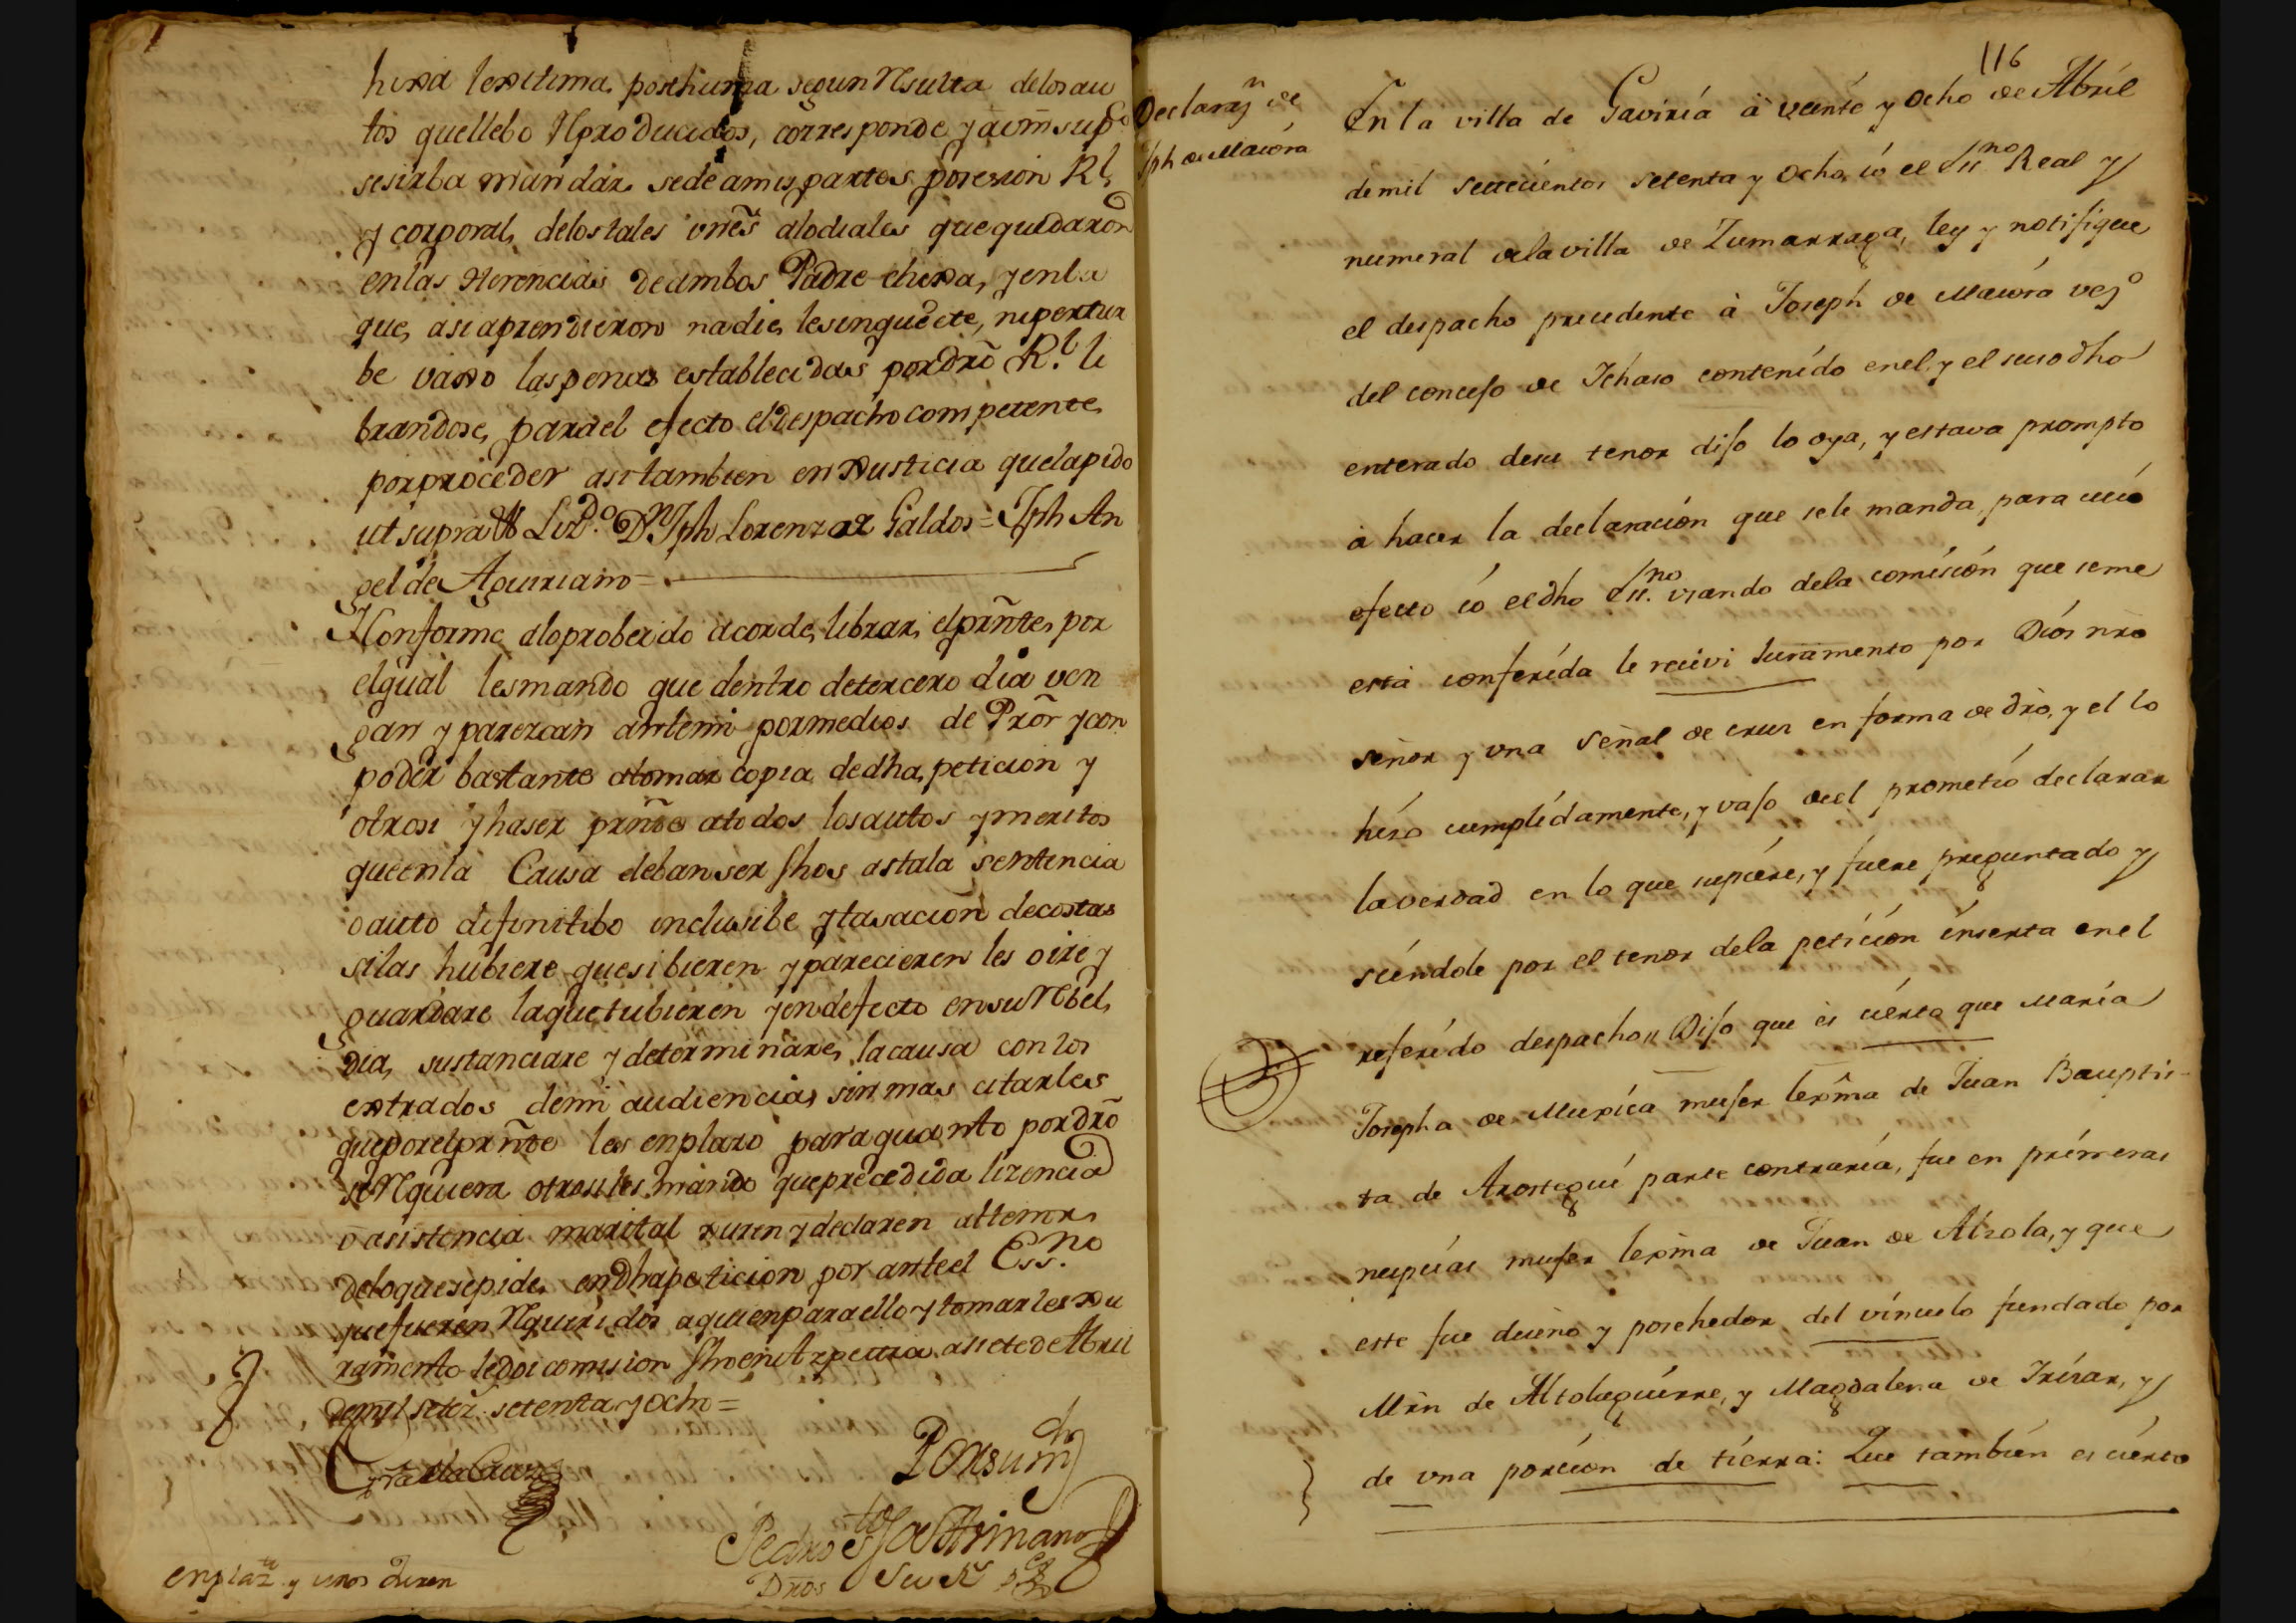 hixa lexitima posthuma segun Resulta delos au
tos quellebo Reproducidos, corresponde y avm̃ supco
sesirba mandar sede amis partes posesion Rl,
y corporal, delos tales vnẽs alodiales que quedaron
en las Herencias de ambos Padre ehixa, y enla
que, asi aprendieron nadie, les inquiete, ni pertur
be vaxo las penas establecidas por dr̃o Rl. li
brandose, para el efecto el despacho competente
por proceder asi tambien en Justicia que la pido
ut supra Lizdo. Dn Jph Lorenzo Galdos = Jph An
gel de Aguiriano =
Y Conforme alo probeido acorde, librar, el prñte, por
el qual les mando que dentro de tercero dia ven
gan y parezcan antemi por medios de Prõr y con
poder bastante atomar copia de dha, peticion y
otrosi y haser prñtes atodos los autos y meritos
que enla Causa deban ser fhos asta la sentencia
o auto difinitibo inclusibe y tasacion de costas
silas hubiere que si bieren y parecieren les oire y
guardare la que tubieren y en defecto en su Rebel,
dia, sustanciare y determinare, la causa con los
extrados demi audiencia, sin mas citarles
que por el prñte les enplazo para quanto por dr̃o
se Requiera otrosi les mando que precedida lizencia
o asistencia marital Juren y declaren al tenor
delo que se pide, en dha peticion por ante el Essno.
que fueren Requeridos a quien para ello y tomarles Ju
ramento le doi comision fho en Azpeitia a siete de Abril
de mil setez. setenta y ocho =
Por su m
Pedro
enplaz y unos
116
Declaraz.n de
Jph de Maiora
En la villa de Gaviria à veinte y ocho de Abril
de mil setecientos setenta y ocho, io el Ss.no Real y
numeral dela villa de Zumarraga, ley y notifique
el despacho precedente à Joseph de Maiora vezo
del concejo de Ichaso contenido en el, y el susodho
enterado desu tenor dijo lo oya, y estava prompto
à hacer la declaracion que sele manda, para cuio
efecto io el dho Ss.no usando dela comision que seme
està conferida le recivi Juramento por Dios nr̃o
señor y una señal de cruz en forma de dr̃o, y el lo
hizo cumplidamente, y vajo de el prometio declarar
la verdad en lo que supiere, y fuere preguntado y
siendole por el tenor dela peticion inserta en el
referido despacho,, Dijo que es cierto que Maria
Josepha de Muxica mujer lexm̃a de Juan Bauptis-
ta de Arostegui parte contraria, fue en primeras
nupcias mujer lexm̃a de Juan de Alzola, y que
este fue dueño y posehedor, del vinculo fundado por
Mr̃n de Altolaguirre, y Magdalena de Irizar, y
de una porcion de tierra: Que tambien es cierto